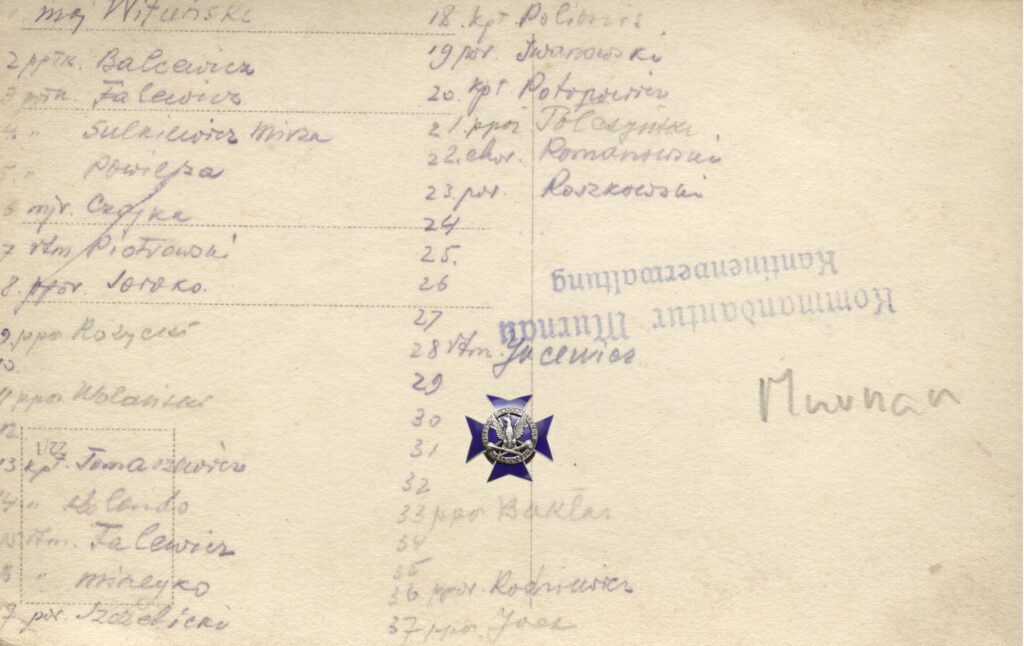 1. maj Wituński
2 ppłk. Balcewicz
3 ppłk. Falewicz
4 " Sulkiewicz Mirza
5 " Powierza
6 mjr. Czajka
7 rtm Piotrowski
8. ppor. Soroko.
9. ppor Różycki
10.
11 ppor Wolański
12
13 kpt. Tomaszewicz
14 "
15 rtm. Falewicz
16 " Mineyko
17 por. Szczelicki
18. kpt Polionis
19 por. Iwanowski
20. kpt Potopowicz
21. ppor
22. chor. Romanowski
23. por. Roszkowski
24
25.
26
27
28 rtm. Jucewicz
29
30
31
32
33 ppor Baktar
34
35
36 ppor. Rodziewicz
37 ppor.
Kommandantur Murnau
Kantinenverwaltung
Murnau